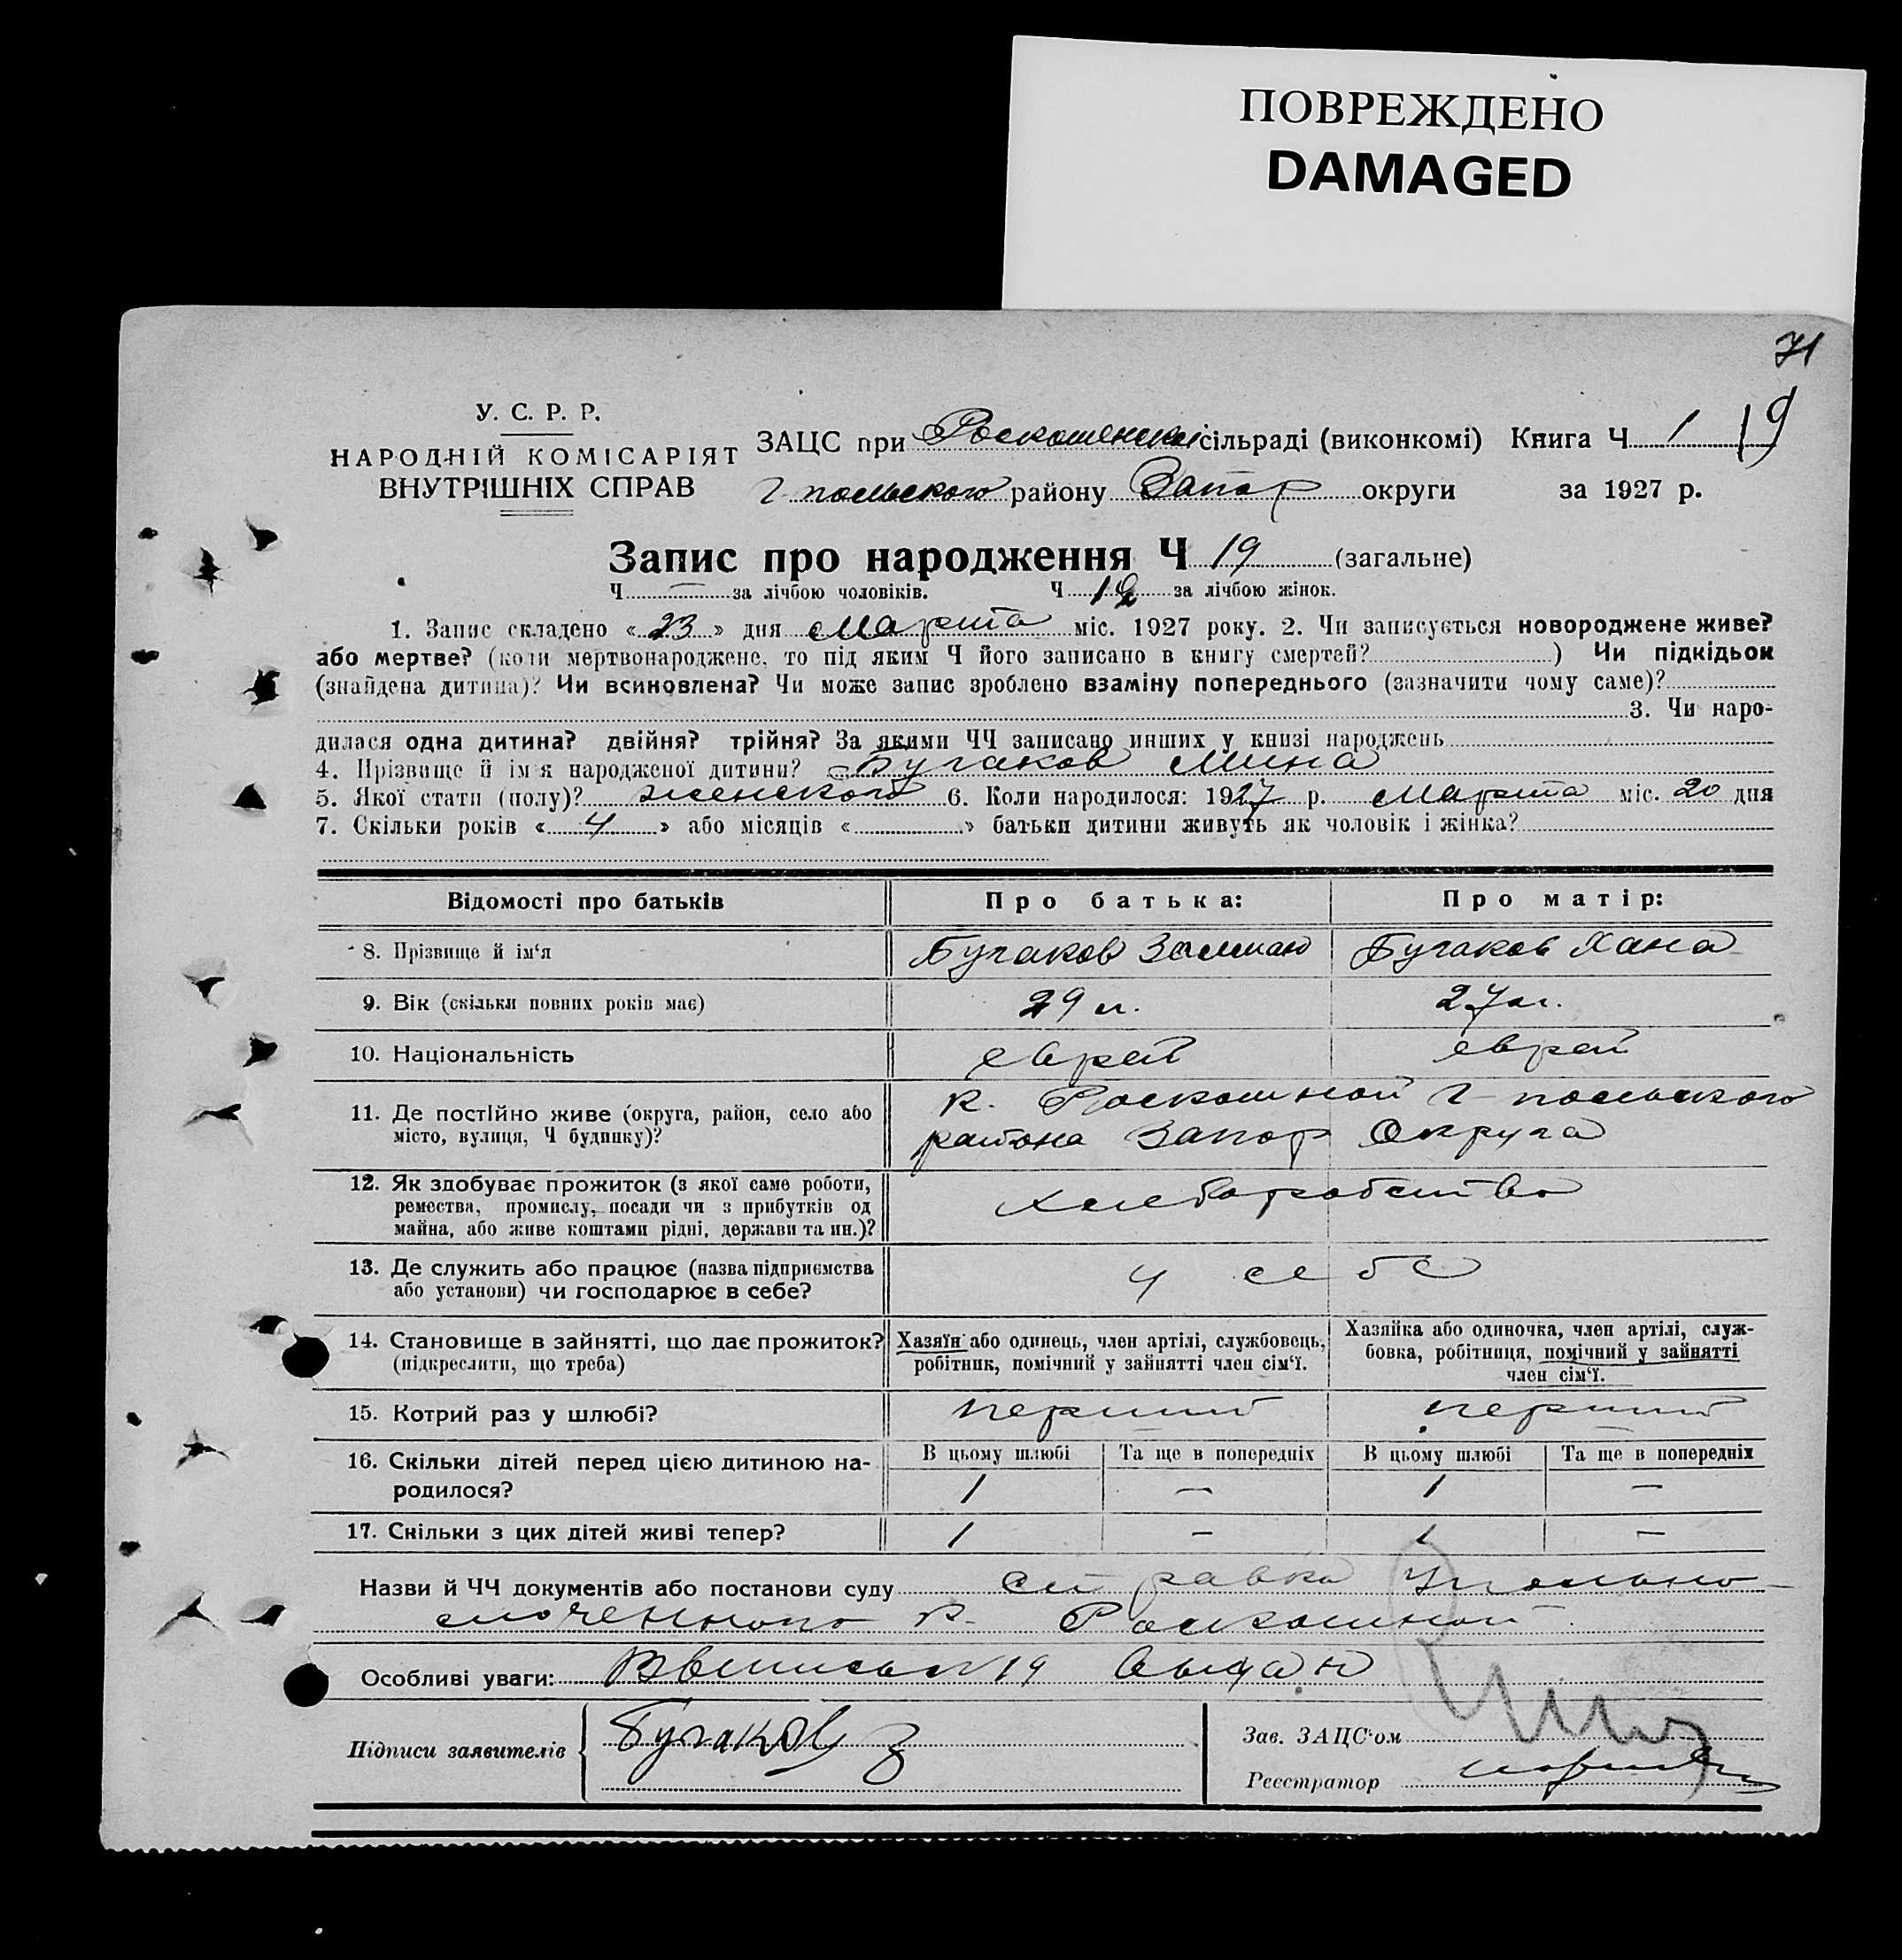 ПОВРЕЖДЕНО
DAMAGED
71
У. С. Р. Р.
НАРОДНІЙ КОМІСАРІЯТ
ВНУТРІШНІХ СПРАВ
ЗАЦС при Роскошенской сільраді (виконкомі) Книга Ч 1 19
Г-польского району Запор округи за 1927 р.
Запис про народження Ч 19 (загальне)
Ч — за лічбою чоловіків. Ч 12 за лічбою жінок.
1. Запис складено « 23 » дня Марта міс. 1927 року. 2. Чи записується новороджене живе?
або мертве? (коли мертвонароджене, то під яким Ч його записано в книгу смертей? ) Чи підкідьок
(знайдена дитина)? Чи всиновлена? Чи може запис зроблено взаміну попереднього (зазначити чому саме)?
3. Чи наро-
дилася одна дитина? двійня? трійня? За якими ЧЧ записано инших у книзі народжень
4. Прізвище й ім'я народженої дитини? Бугаков Мина
5. Якої стати (полу)? женского 6. Коли народилося: 1927 р. Марта міс. 20 дня
7. Скільки років « 4 » або місяців « » батьки дитини живуть як чоловік і жінка?
Відомості про батьків Про батька: Про матір:
8. Прізвище й ім'я Бугаков Залман Бугаков Хана
9. Вік (скільки повних років має) 29 л. 27 л.
10. Національність еврей еврей
11. Де постійно живе (округа, район, село або
місто, вулиця, Ч будинку)?
к. Роскошной Г-польского
района Запор Округа
12. Як здобуває прожиток (з якої саме роботи,
ремества, промислу, посади чи з прибутків од
майна, або живе коштами рідні, держави та ин.)?
хлеборобство
13. Де служить або працює (назва підприємства
або установи) чи господарює в себе?
у себе
14. Становище в зайнятті, що дає прожиток?
(підкреслити, що треба)
Хазяїн або одинець, член артілі, службовець,
робітник, помічний у зайнятті член сім'ї.
Хазяйка або одиночка, член артілі, служ-
бовка, робітниця, помічний у зайнятті
член сім'ї.
15. Котрий раз у шлюбі? перший перший
16. Скільки дітей перед цією дитиною на-
родилося?
В цьому шлюбі Та ще в попередніх В цьому шлюбі Та ще в попередніх
1 — 1 —
17. Скільки з цих дітей живі тепер? 1 — 1 —
Назви й ЧЧ документів або постанови суду справка Уполно-
моченного к. Роскошной
Особливі уваги: 19 выдано
Підписи заявителів Бугаков З
Зав. ЗАЦС'ом
Реєстратор